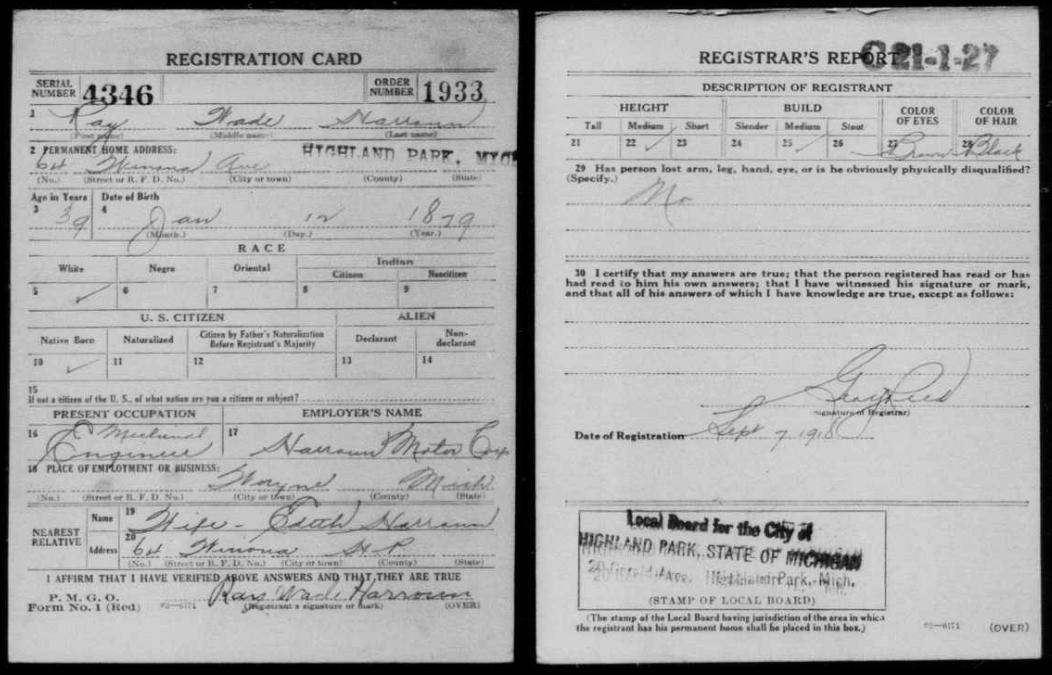 REGISTRATION CARD
SERIAL NUMBER 4346 ORDER NUMBER 1933
1 Ray Wade Harroun
(First name) (Middle name) (Last name)
2 PERMANENT HOME ADDRESS:
64 Winona Ave HIGHLAND PARK, MICH
(No.) (Street or R. F. D. No.) (City or town) (County) (State)
Age in Years Date of Birth
3 39 4 Jan 12 1879
(Month.) (Day.) (Year.)
RACE
White Negro Oriental Indian
Citizen Noncitizen
5 ✓ 6 7 8 9
U. S. CITIZEN ALIEN
Native Born Naturalized Citizen by Father's Naturalization Before Registrant's Majority Declarant Non-declarant
10 ✓ 11 12 13 14
15
If not a citizen of the U. S., of what nation are you a citizen or subject?
PRESENT OCCUPATION EMPLOYER'S NAME
16 Engineer 17 Harroun Motor Corp
18 PLACE OF EMPLOYMENT OR BUSINESS:
Wayne Mich
(No.) (Street or R. F. D. No.) (City or town) (County) (State)
NEAREST RELATIVE
Name 19 Wife - Edith Harroun
Address 20 64 Winona H P
(No.) (Street or R. F. D. No.) (City or town) (County) (State)
I AFFIRM THAT I HAVE VERIFIED ABOVE ANSWERS AND THAT THEY ARE TRUE
P. M. G. O.
Form No. 1 (Red) Ray Wade Harroun
(Registrant's signature or mark) (OVER)
REGISTRAR'S REPORT 21-1-27
DESCRIPTION OF REGISTRANT
HEIGHT BUILD COLOR OF EYES COLOR OF HAIR
Tall Medium Short Slender Medium Stout
21 22 ✓ 23 24 25 ✓ 26 27 Brown 28 Black
29 Has person lost arm, leg, hand, eye, or is he obviously physically disqualified?
(Specify.) No
30 I certify that my answers are true; that the person registered has read or has
had read to him his own answers; that I have witnessed his signature or mark,
and that all of his answers of which I have knowledge are true, except as follows:
(Signature of Registrar)
Date of Registration Sept 7 1918
Local Board for the City of
HIGHLAND PARK, STATE OF MICHIGAN
Highland Park, Mich.
(STAMP OF LOCAL BOARD)
(The stamp of the Local Board having jurisdiction of the area in which
the registrant has his permanent home shall be placed in this box.)
(OVER)